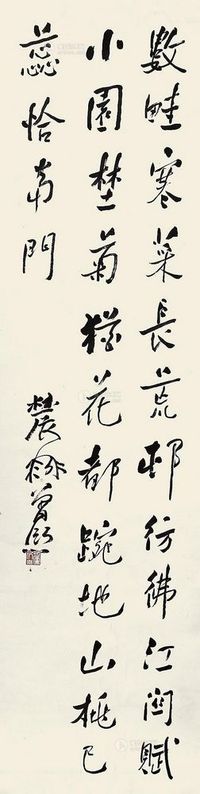 數畦寒菜長荒邨彷彿江關賦
小園埜菊猶花都踠地山桃已
蕊恰當門
農髯曾熙